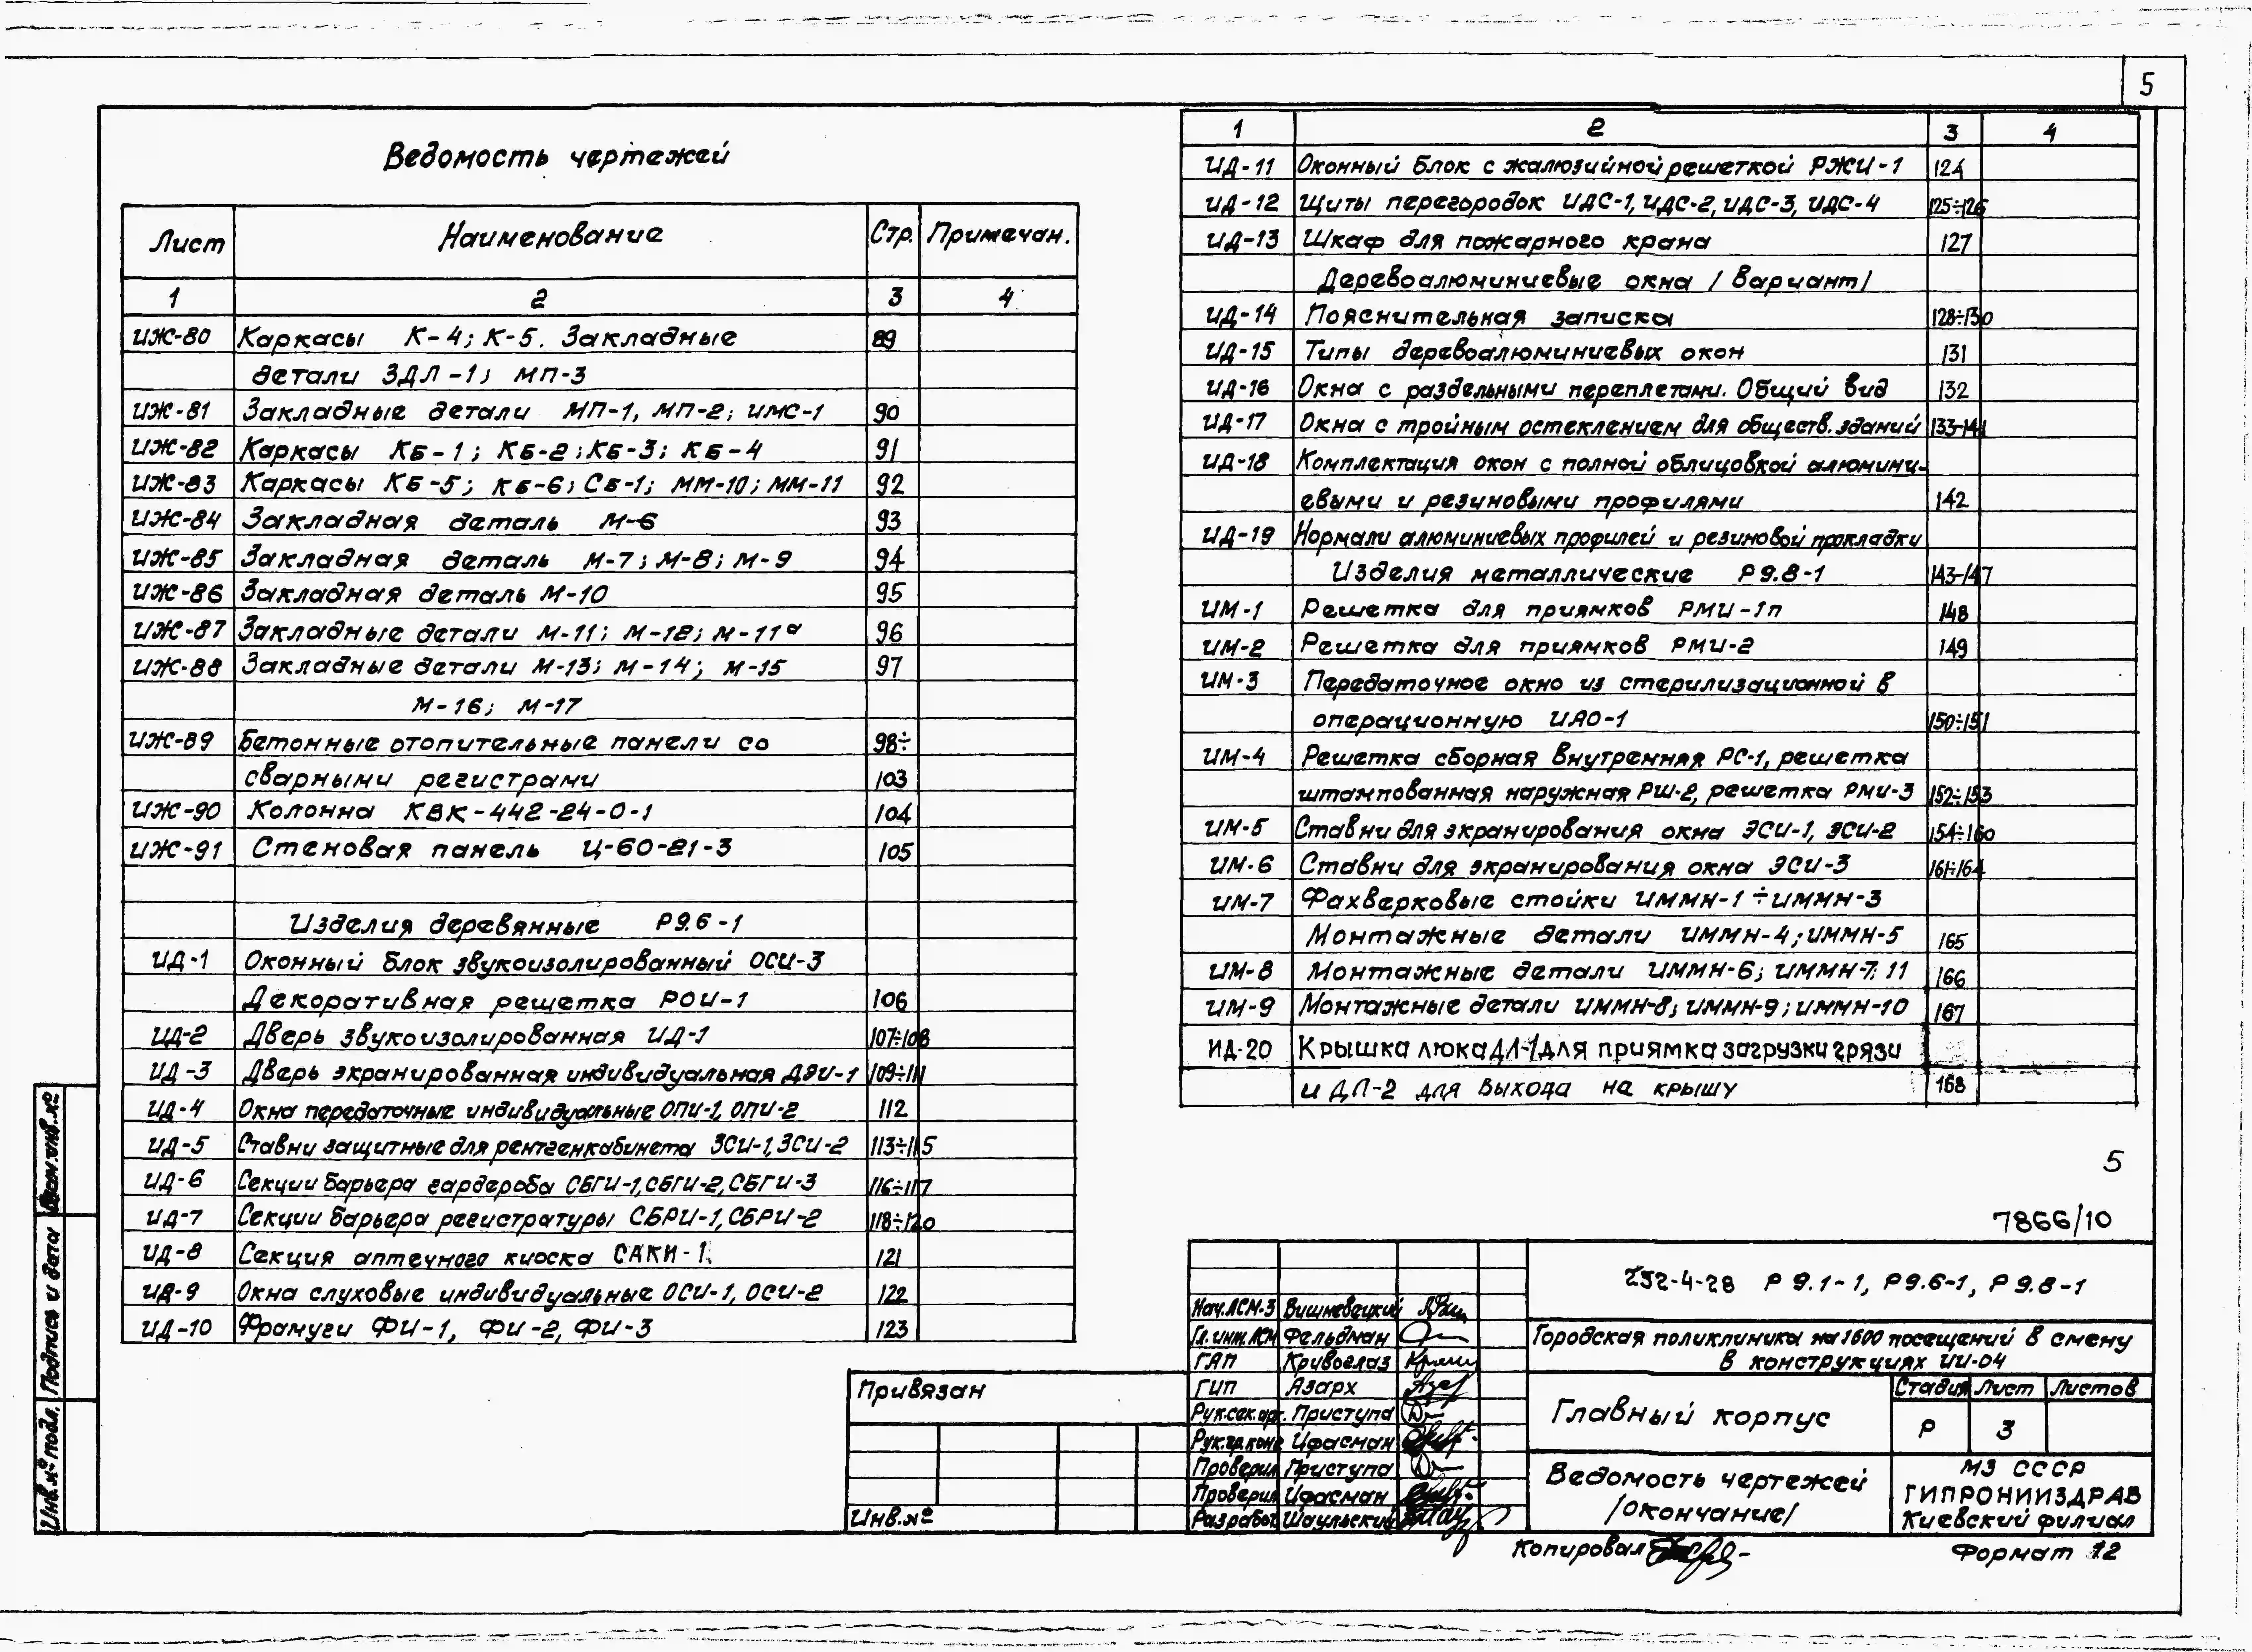 5
Ведомость чертежей
Лист Наименование Стр. Примечан.
1 2 3 4
ИЖ-80 Каркасы К-4; К-5. Закладные 89
детали ЗДЛ-1; МП-3
ИЖ-81 Закладные детали МП-1, МП-2; ИМС-1 90
ИЖ-82 Каркасы КБ-1; КБ-2; КБ-3; КБ-4 91
ИЖ-83 Каркасы КБ-5; КБ-6; СБ-1; ММ-10; ММ-11 92
ИЖ-84 Закладная деталь М-6 93
ИЖ-85 Закладная деталь М-7; М-8; М-9 94
ИЖ-86 Закладная деталь М-10 95
ИЖ-87 Закладные детали М-11; М-12; М-11а 96
ИЖ-88 Закладные детали М-13; М-14; М-15 97
М-16; М-17
ИЖ-89 Бетонные отопительные панели со 98÷
сварными регистрами 103
ИЖ-90 Колонна КВК-442-24-0-1 104
ИЖ-91 Стеновая панель Ц-60-21-3 105
Изделия деревянные Р9.6-1
ИД-1 Оконный блок звукоизолированный ОСИ-3
Декоративная решетка РОИ-1 106
ИД-2 Дверь звукоизолированная ИД-1 107÷108
ИД-3 Дверь экранированная индивидуальная ДЭИ-1 109÷111
ИД-4 Окна передаточные индивидуальные ОПИ-1, ОПИ-2 112
ИД-5 Ставни защитные для рентгенкабинета ЗСИ-1, ЗСИ-2 113÷115
ИД-6 Секции барьера гардероба СБГИ-1, СБГИ-2, СБГИ-3 116÷117
ИД-7 Секции барьера регистратуры СБРИ-1, СБРИ-2 118÷120
ИД-8 Секция аптечного киоска САКИ-1. 121
ИД-9 Окна слуховые индивидуальные ОСИ-1, ОСИ-2 122
ИД-10 Фрамуги ФИ-1, ФИ-2, ФИ-3 123
1 2 3 4
ИД-11 Оконный блок с жалюзийной решеткой РЖИ-1 124
ИД-12 Щиты перегородок ИДС-1, ИДС-2, ИДС-3, ИДС-4 125÷126
ИД-13 Шкаф для пожарного крана 127
Деревоалюминиевые окна /Вариант/
ИД-14 Пояснительная записка 128÷130
ИД-15 Типы деревоалюминиевых окон 131
ИД-16 Окна с раздельными переплетами. Общий вид 132
ИД-17 Окна с тройным остеклением для обществ. зданий 133-141
ИД-18 Комплектация окон с полной облицовкой алюмини-
евыми и резиновыми профилями 142
ИД-19 Нормали алюминиевых профилей и резиновой прокладки
Изделия металлические Р9.8-1 143-147
ИМ-1 Решетка для приямков РМИ-1п 148
ИМ-2 Решетка для приямков РМИ-2 149
ИМ-3 Передаточное окно из стерилизационной в
операционную ИЯО-1 150÷151
ИМ-4 Решетка сборная внутренняя РС-1, решетка
штампованная наружная РШ-2, решетка РМИ-3 152÷153
ИМ-5 Ставни для экранирования окна ЭСИ-1, ЭСИ-2 154÷160
ИМ-6 Ставни для экранирования окна ЭСИ-3 161÷164
ИМ-7 Фахверковые стойки ИММН-1÷ИММН-3
Монтажные детали ИММН-4; ИММН-5 165
ИМ-8 Монтажные детали ИММН-6; ИММН-7; 11 166
ИМ-9 Монтажные детали ИММН-8; ИММН-9; ИММН-10 167
ИД-20 Крышка люка ДЛ-1 для приямка загрузки грязи
и ДЛ-2 для выхода на крышу 168
5
7866/10
252-4-28 Р 9.1-1, Р9.6-1, Р 9.8-1
Нач.АСМ-3 Вишневецкий
Гл.инж.АСМ Фельдман
ГАП Кривоглаз
ГИП Азарх
Рук.сек.арх. Приступа
Рук.гр.конс Ифасман
Проверил Приступа
Проверил Ифасман
Разработ. Шаульский
Городская поликлиника на 1600 посещений в смену
в конструкциях ИИ-04
Главный корпус
Стадия Лист Листов
Р 3
Ведомость чертежей
/окончание/
МЗ СССР
ГИПРОНИИЗДРАВ
Киевский филиал
Привязан
Инв.№
Копировал
Формат 12
Взам.инв.№
Подпись и дата
Инв.№подл.